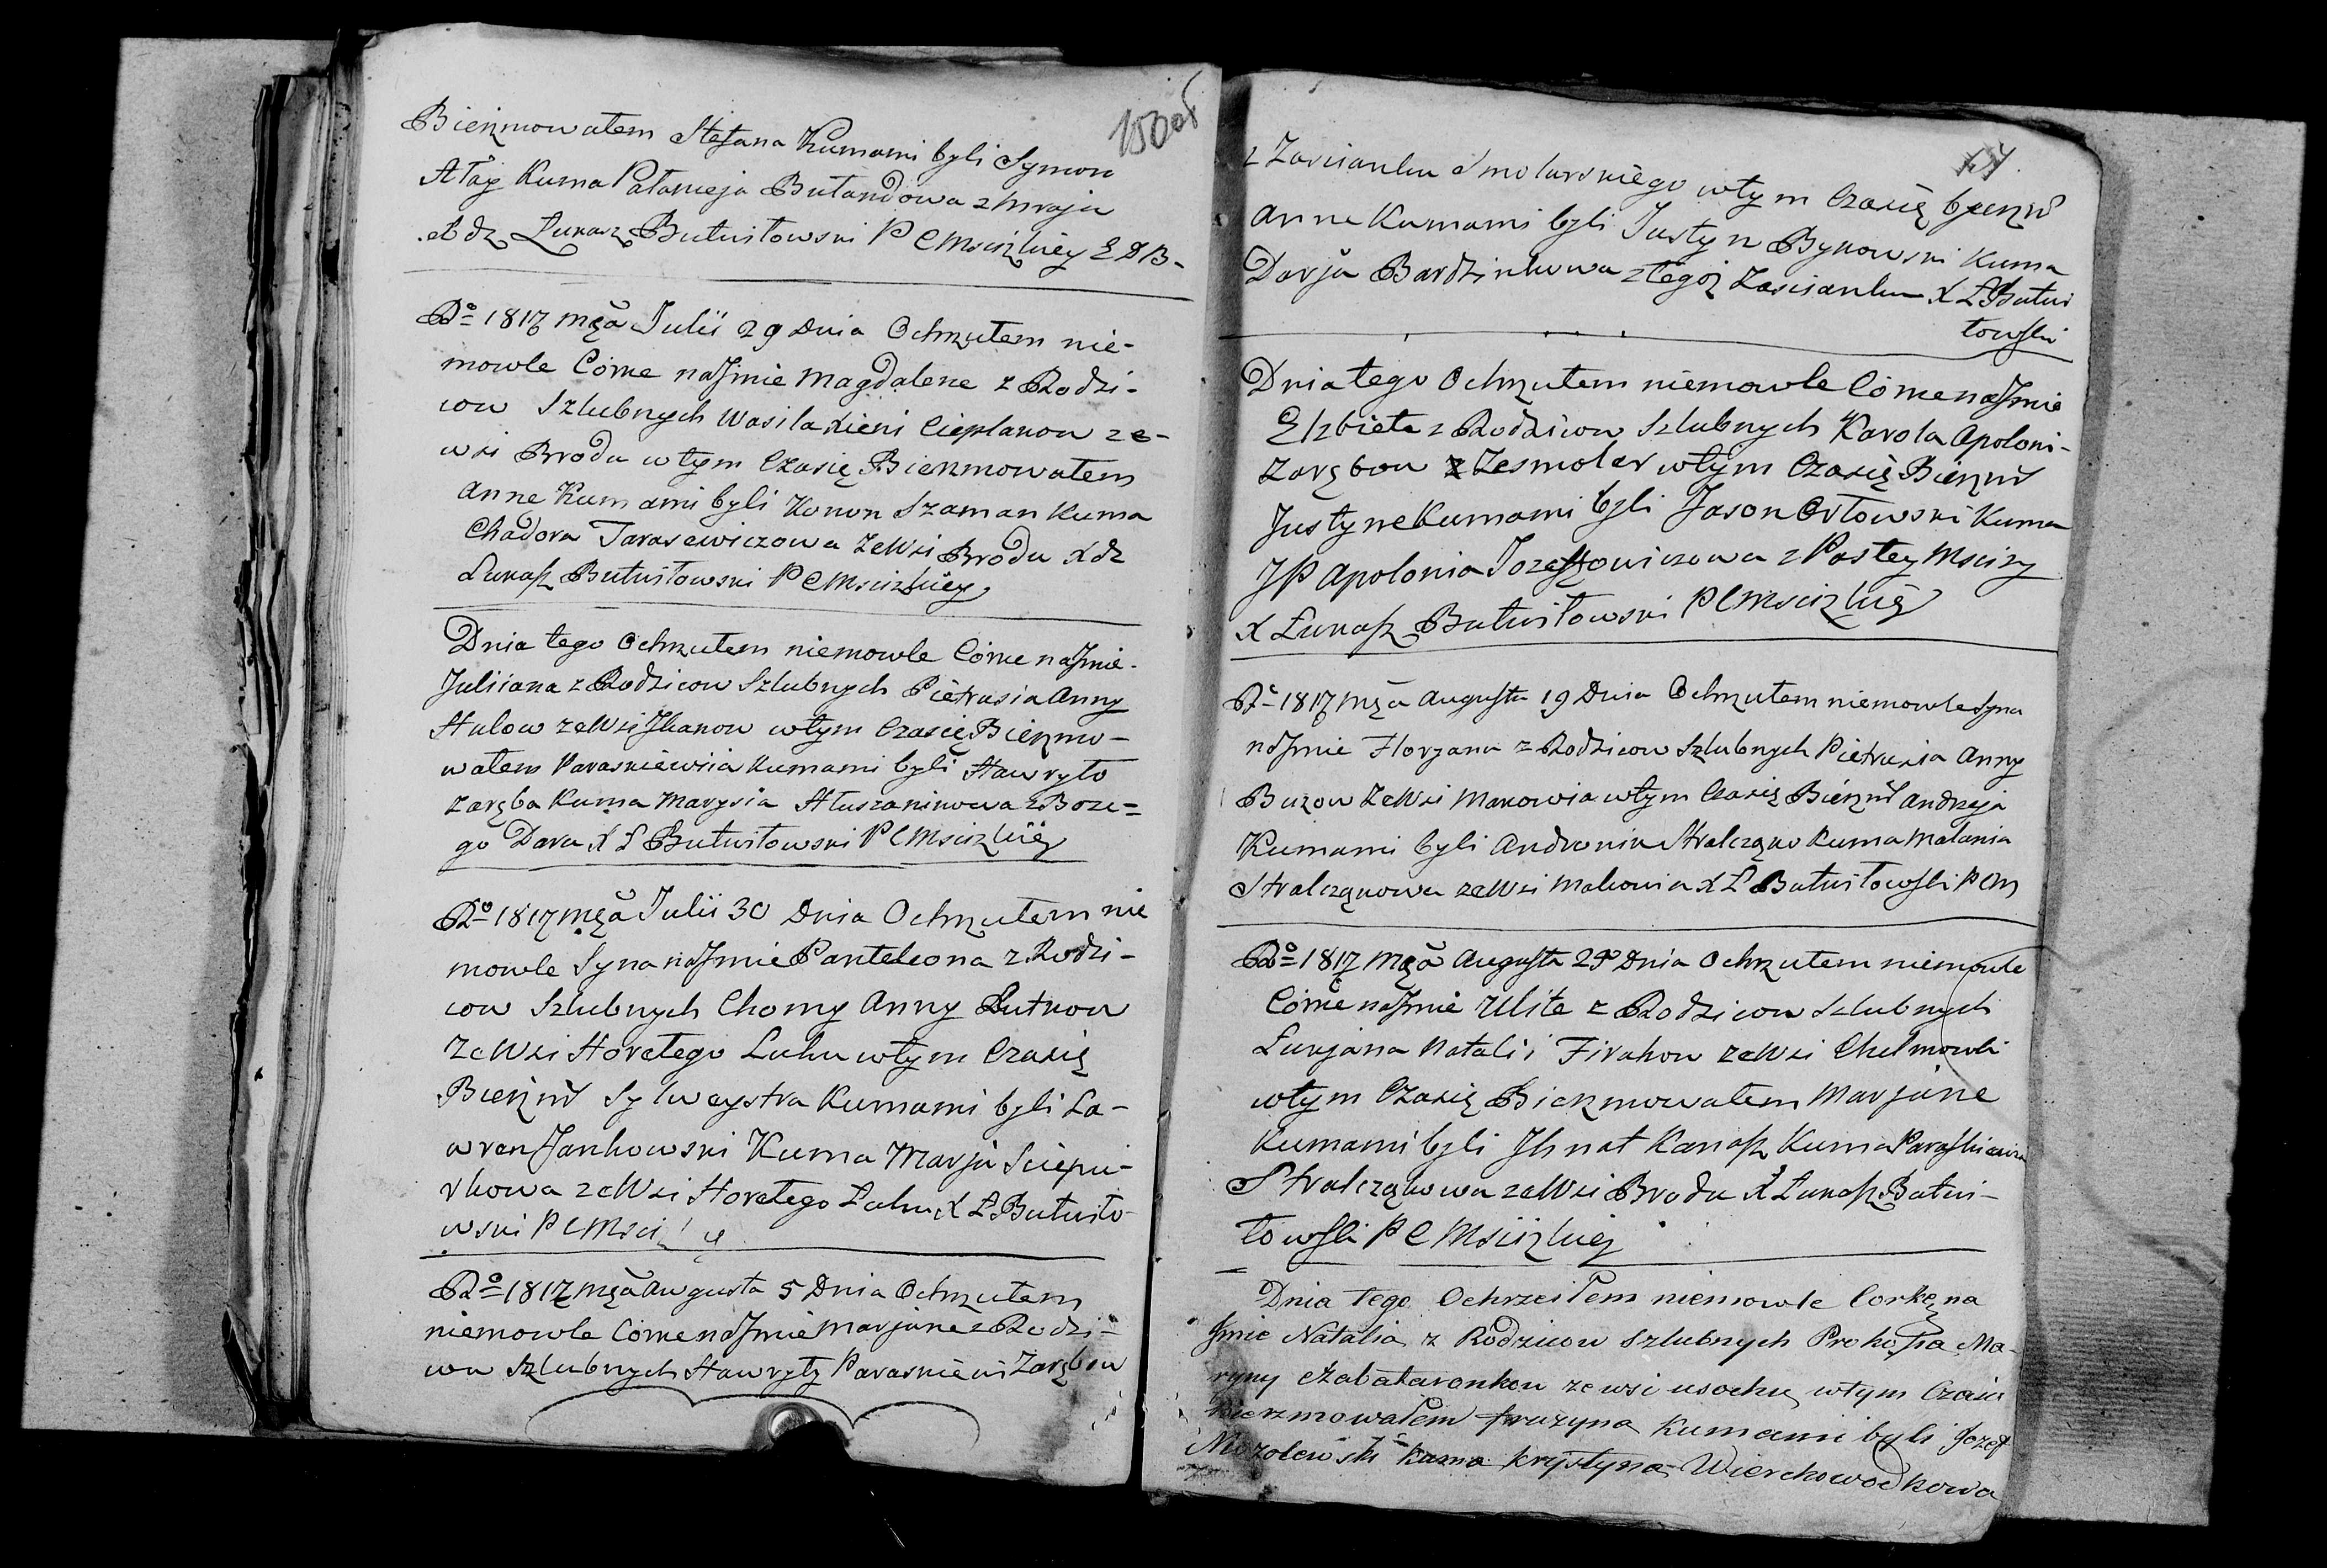 150 об
Bierzmowałem Stefana Kumami byli Symon
Atay Kuma Pałanieja Bułandowa z kraju
Xdz Łukasz Butwiłowski P C Mscizkiey E D B
Ro 1817 mca Julii 29 Dnia Ochrzciłem nie-
mowle Córke naJmie Magdalene z Rodzi-
cow Szlubnych Wasila Xieni Cieplakow ze-
wsi Brodu wtym Czasię Bierzmowałem
Anne Kumami byli Konon Szaman Kuma
Chadora Tarasewiczowa zeWsi Brodu Xdz
Łukasz Butwiłowski P C Mscizkiey
Dnia tego Ochrzciłem niemowle Córke naJmie-
Juliiana z Rodzicow Szlubnych Pietrusia Anny
Hulow zeWsi Jkanow wtym Czasię Bierzmo-
wałem Paraskiewiia Kumami byli Hawryło
Zaręba Kuma Marysia Hłuszaninowa z Boze-
go Daru X Ł Butwiłowski P C Mscizkiey
Ro 1817 mca Julii 30 Dnia Ochrzciłem nie
mowle Syna naJmie Panteleona z Rodzi-
cow Szlubnych Chomy Anny Łutkow
ZeWsi Horełego Luhu wtym Czasię
Bierzmł Sylweystra Kumami byli La-
wren Jankowski Kuma Marja Sciepu-
rkowa zeWsi Horełego Łuhu X Ł Butwiło-
wski P C Msci
Ro 1817 mca Augusta 5 Dnia Ochrzciłem
niemowle Córke naJmie Marjane z Rodzi-
cow Szlubnych Hawryły Paraskiewi Zarębow
z Zascianku Smolarskiego wtym Czasię bierzmł
Anne Kumami byli Justyn Bykowski Kuma
Darja Bardzinkowa z tegoż Zascianku X Ł Butwi
łowski
Dnia tego Ochrzciłem niemowle Córke naJmie
Elzbiete z Rodzicow Szlubnych Karola Apoloni-
Zarębow z Zesmoler wtym Czasię Bierzmł
Justyne Kumami byli Jason Orłowski Kuma
JP Apolonia Jozeffowiczowa z Pastey Mscizy
X Łukasz Butwiłowski P C Mscizkiey
Ro 1817 mca Augusta 19 Dnia Ochrzciłem niemowle Syna
naJmie Florjana z Rodzicow Szlubnych Pietrusia Anny
Buzow ZeWsi Makowia wtym Czasię Bierzmł Andrzeja
Kumami byli Andronik Stralcząko Kuma Małania
Stralcząkowa zeWsi Makowia X Ł Butwiłowski P C M
Ro 1817 mca Augusta 29 Dnia Ochrzciłem niemowle
Córke naJmie Ulite z Rodzicow Szlubnych
Łukjana Natalii Firahow zeWsi Chelmowki
wtym Czasię Bierzmowałem Marjane
Kumami byli Jhnat Kanasz Kuma Paraskiewia
Stralcząkowa zeWsi Brodu X Łukasz Butwi-
łowski P C Mscizkiey
Dnia tego Ochrzciłem niemowle Corkę na
Jmie Natalia z Rodzicow szlubnych Prokopa Ma-
ryny Czabataronkow ze wsi usochy wtym Czasie
Bierzmowałem Pruzyna Kumami byli Jozef
Mozolewski Kuma Krystyna Wierchowodkowa